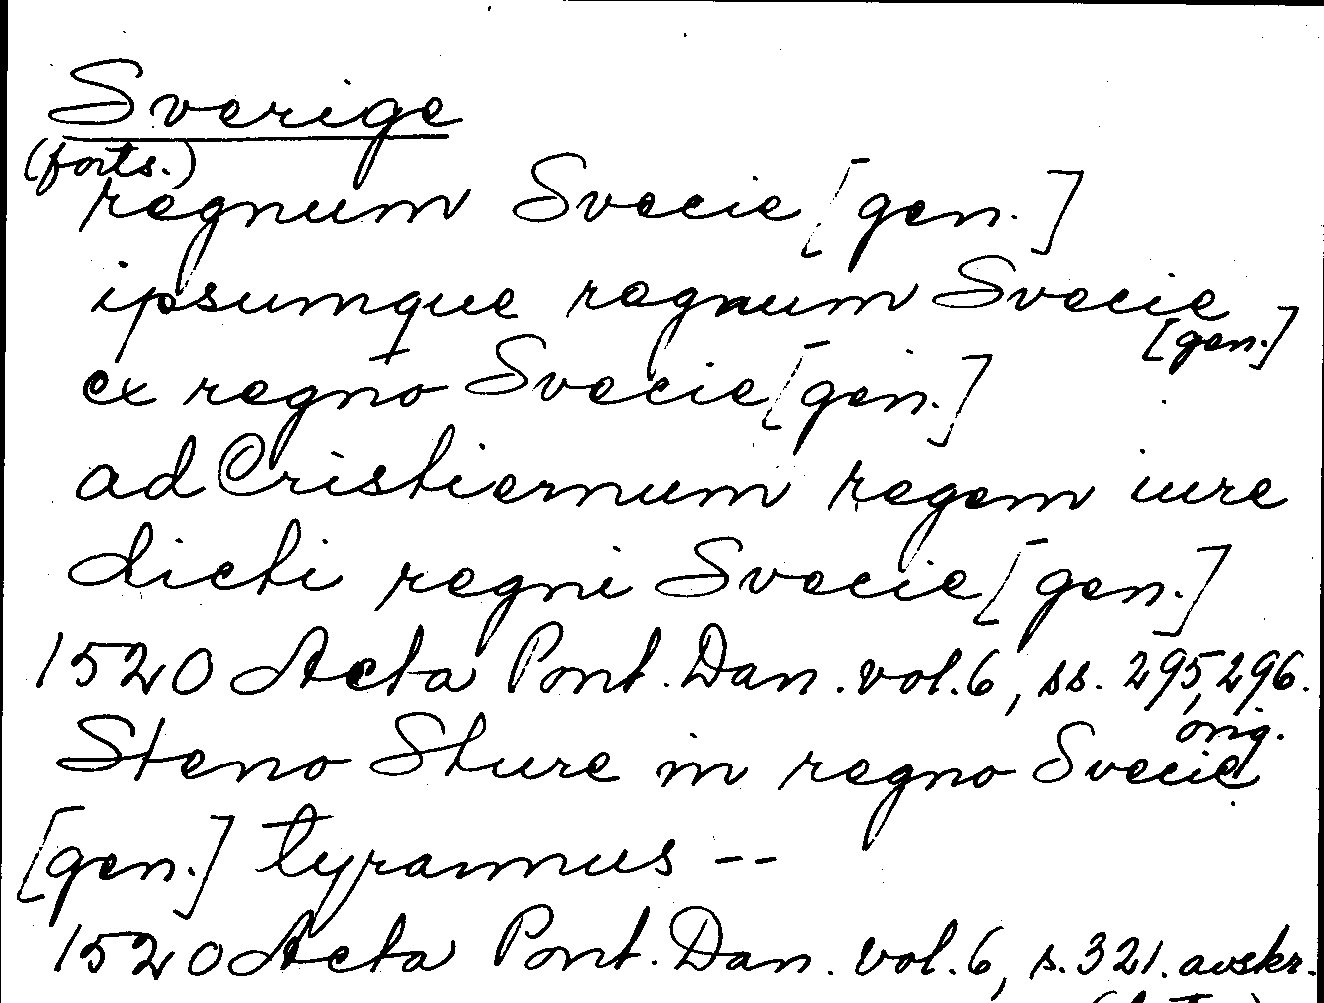 Sverige
(forts.)
regnum Svecie [gen.]
ipsumque regnum Svecie
[gen.]
ex regno Svecie [gen.]
ad Cristiernum regem iure
dicti regni Svecie [gen.]
1520 Acta Pont. Dan. vol. 6, ss. 295, 296.
orig.
Steno Sture in regno Svecie
[gen.] tyrannus --
1520 Acta Pont. Dan. vol. 6, s. 321. avskr.